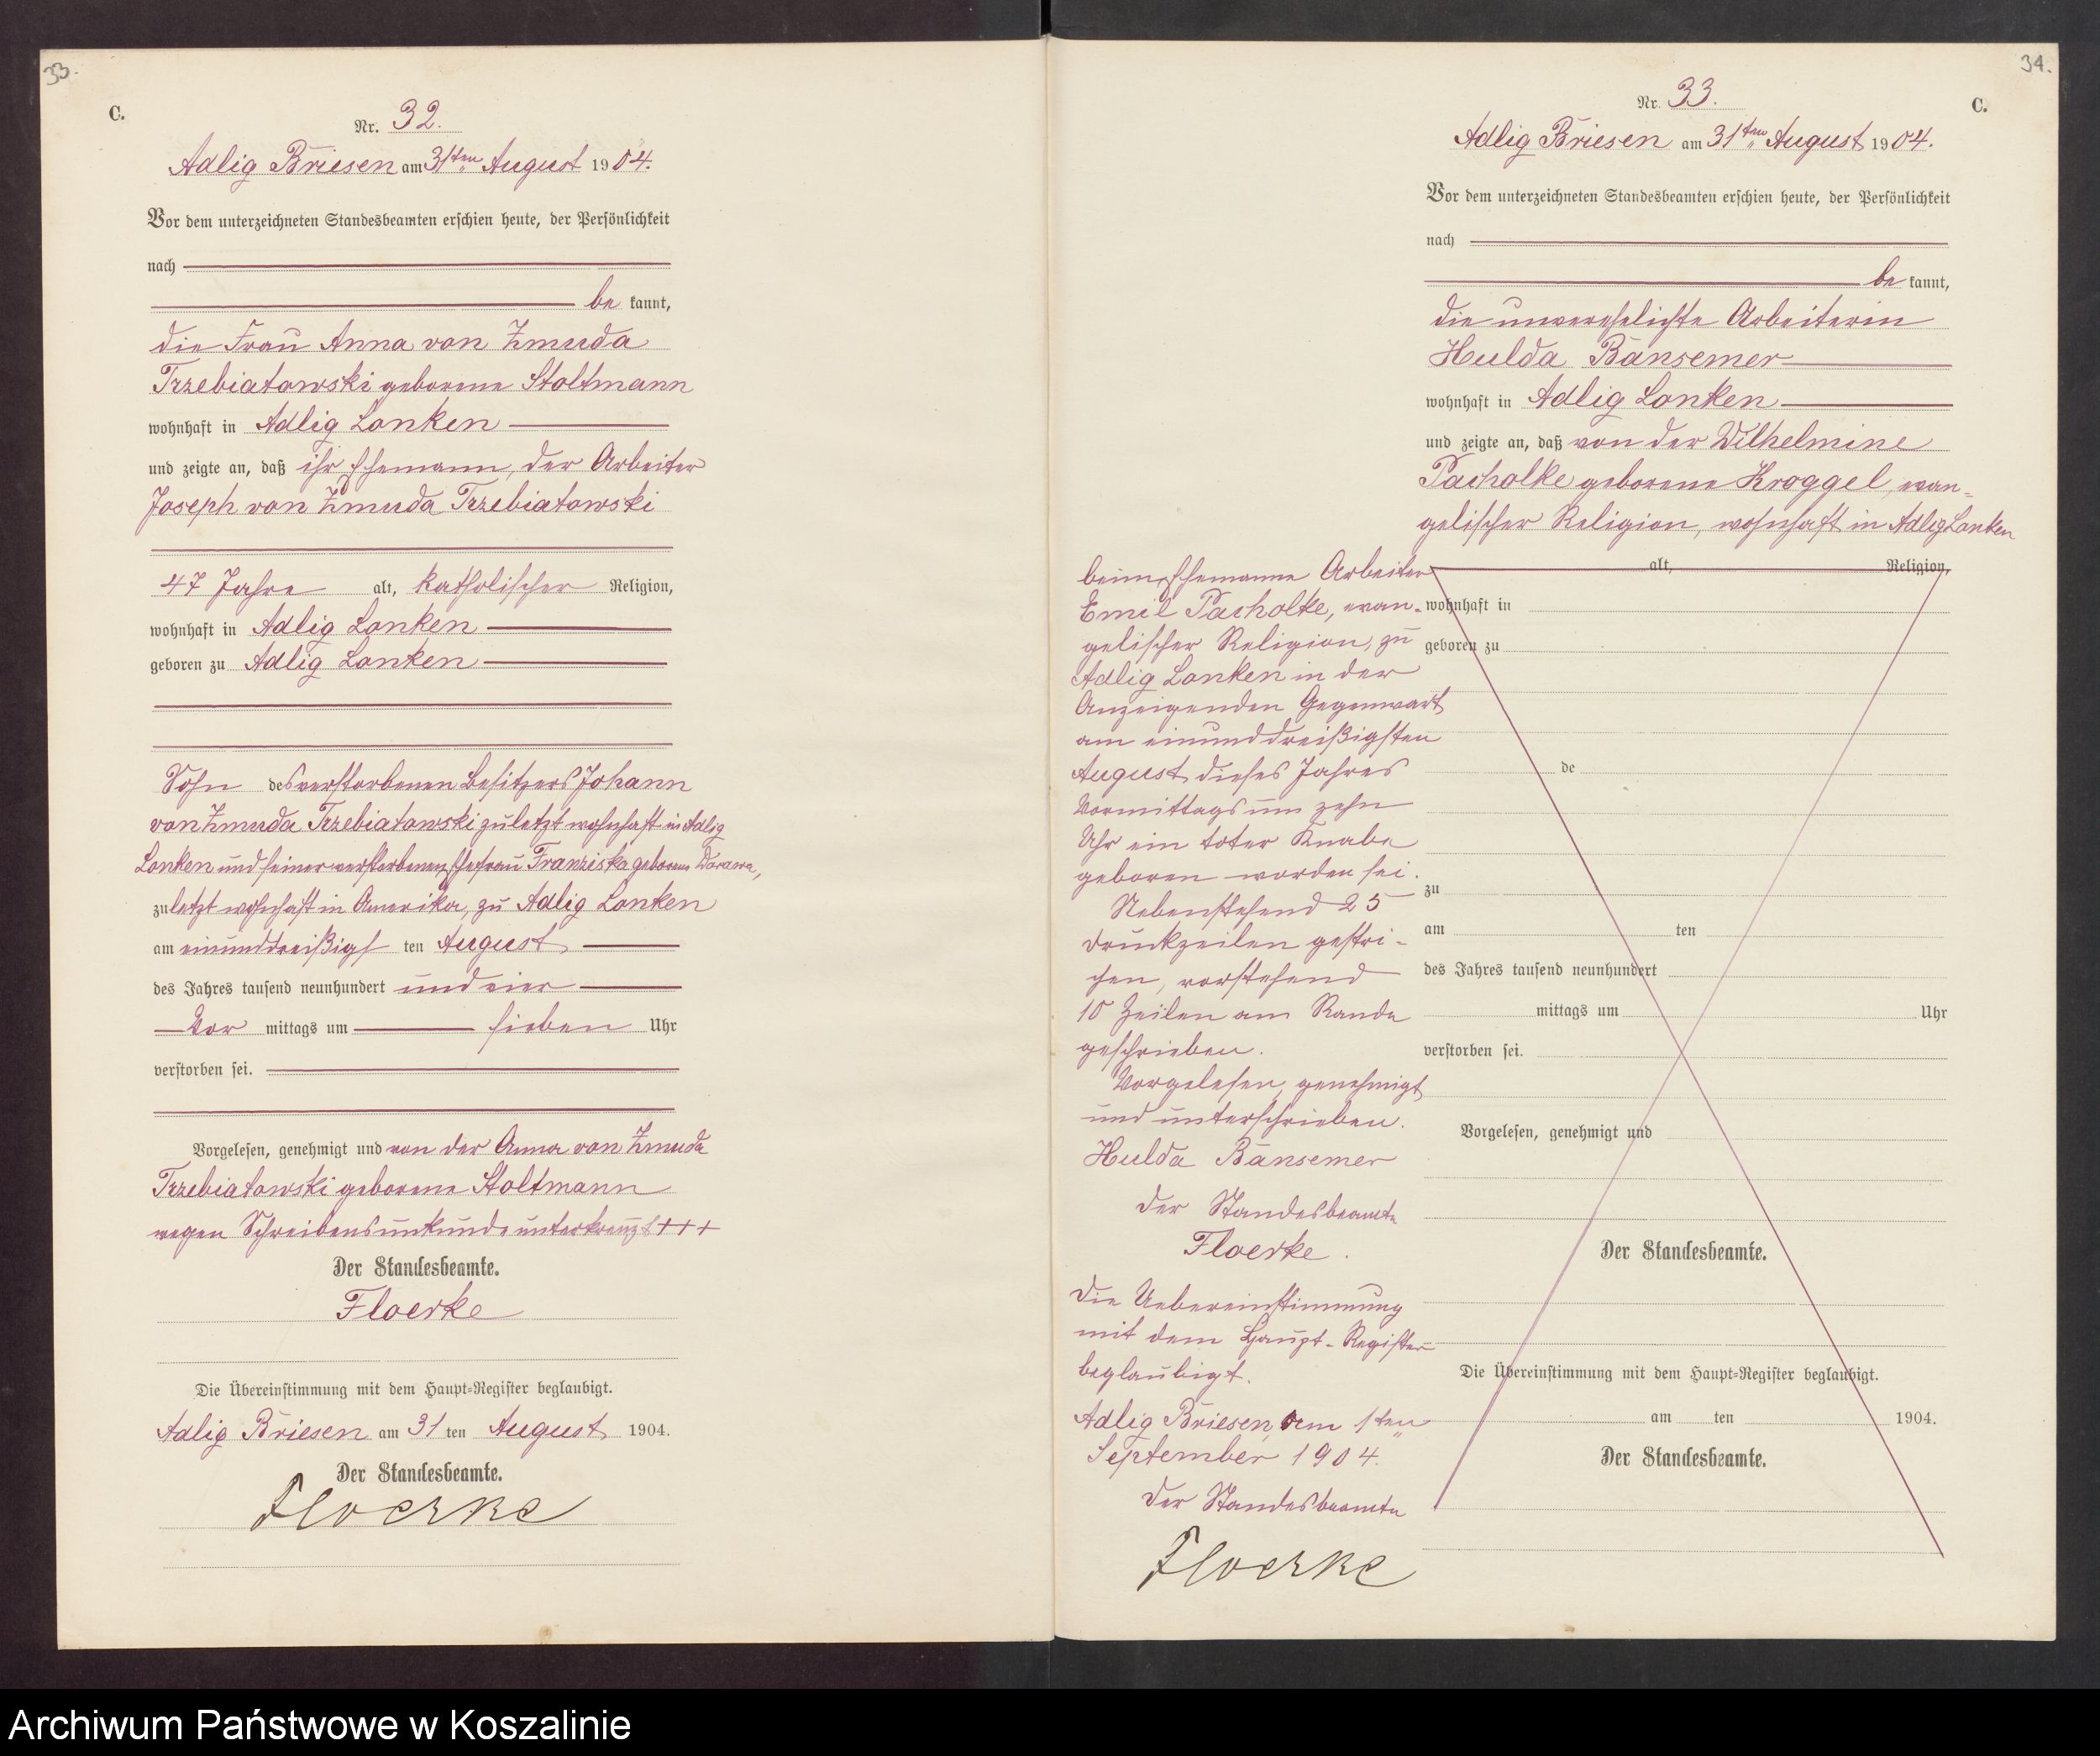 33.
C.
Nr. 32.
Adlig Briesen am 31ten August 1904.
Vor dem unterzeichneten Standesbeamten erschien heute, der Persönlichkeit
nach
be kannt,
die Frau Anna von Zmuda
Trzebiatowski geborene Stoltmann
wohnhaft in Adlig Lonken
und zeigte an, daß ihr Ehemann, der Arbeiter
Joseph von Zmuda Trzebiatowski
47 Jahre alt, katholischer Religion,
wohnhaft in Adlig Lonken
geboren zu Adlig Lonken
Sohn des verstorbenen Besitzers Johann
von Zmuda Trzebiatowski zuletzt wohnhaft in Adlig
Lonken und seiner verstorbenen Ehefrau Franziska geborene
zuletzt wohnhaft in Amerika, zu Adlig Lonken
am einunddreißigs ten August
des Jahres tausend neunhundert und vier
Vor mittags um sieben Uhr
verstorben sei.
Vorgelesen, genehmigt und von der Anna von Zmuda
Trzebiatowski geborene Stoltmann
wegen Schreibensunkunde unterkreuzt +++
Der Standesbeamte.
Floerke
Die Übereinstimmung mit dem Haupt-Register beglaubigt.
Adlig Briesen am 31 ten August 1904.
Der Standesbeamte.
Floerke
34.
C.
Nr. 33.
Adlig Briesen am 31ten August 1904.
Vor dem unterzeichneten Standesbeamten erschien heute, der Persönlichkeit
nach
be kannt,
die unverehelichte Arbeiterin
Hulda Bansemer
wohnhaft in Adlig Lonken
und zeigte an, daß von der Wilhelmine
Pacholke geborene Kroggel, evan-
gelischer Religion, wohnhaft in Adlig Lonken
beim Ehemanne Arbeiter
Emil Pacholke, evan-
gelischer Religion, zu
Adlig Lonken in der
Anzeigenden Gegenwart
am einunddreißigsten
August dieses Jahres
Vormittags um zehn
Uhr ein toter Knabe
geboren worden sei.
Nebenstehend 25
Druckzeilen gestri-
chen, vorstehend
10 Zeilen am Rande
geschrieben.
Vorgelesen, genehmigt
und unterschrieben.
Hulda Bansemer
Der Standesbeamte
Floerke.
Die Uebereinstimmung
mit dem Haupt-Register
beglaubigt.
Adlig Briesen am 1ten
September 1904.
Der Standesbeamte
Floerke
alt, Religion,
wohnhaft in
geboren zu
de
zu
am ten
des Jahres tausend neunhundert
mittags um Uhr
verstorben sei.
Vorgelesen, genehmigt und
Der Standesbeamte.
Die Übereinstimmung mit dem Haupt-Register beglaubigt.
am ten 1904.
Der Standesbeamte.
Archiwum Państwowe w Koszalinie